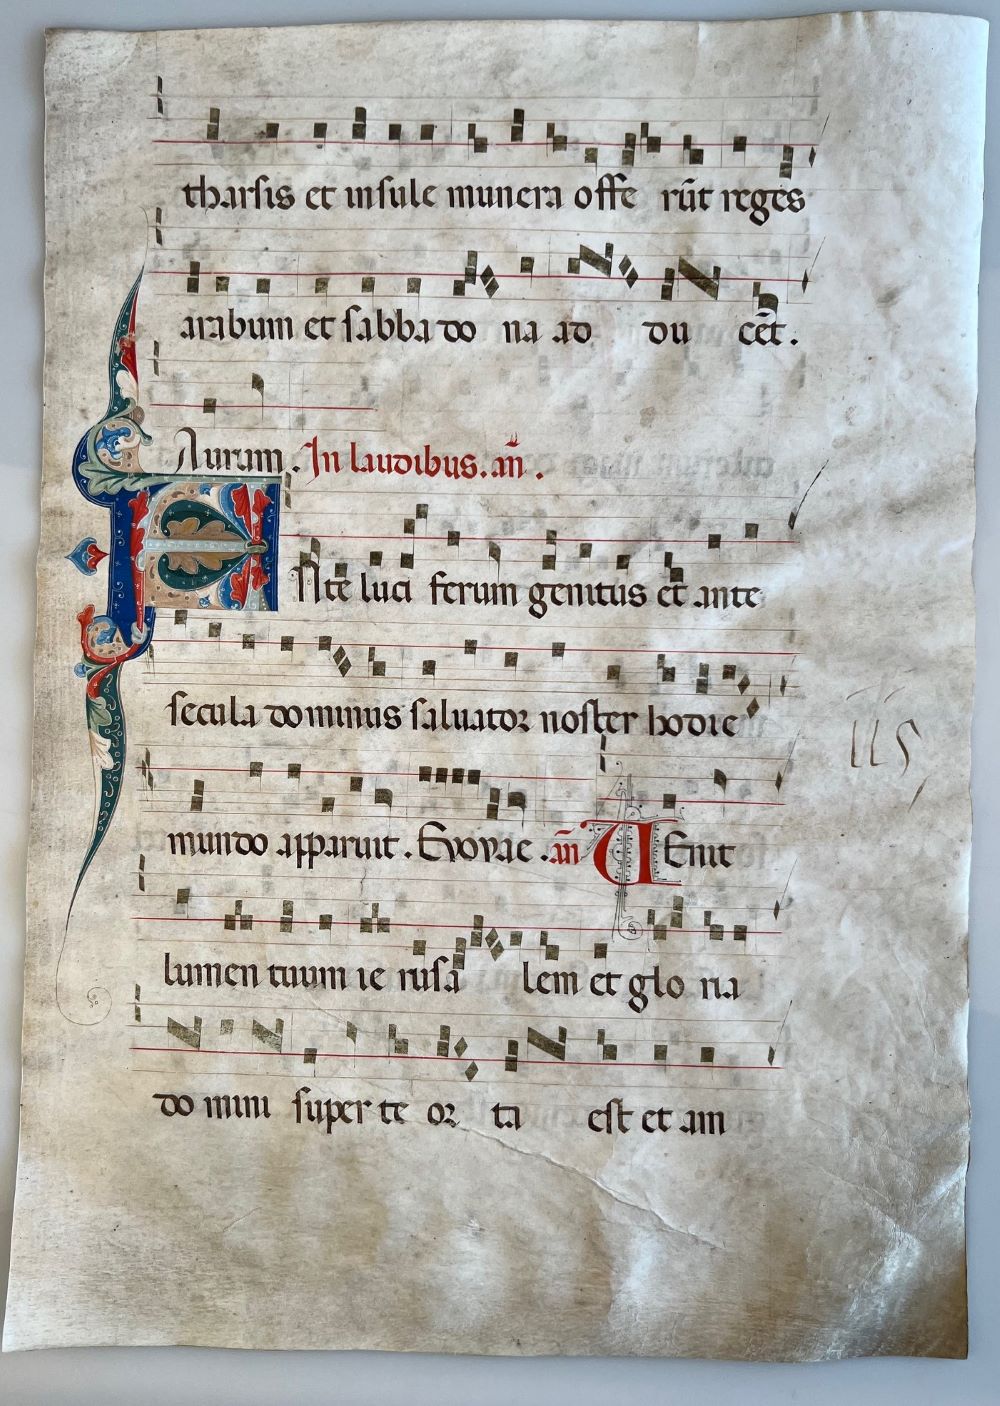 tharsis et insule munera offe rūt reges
arabum et sabba do na ad du cēt.
Auram. In laudibus. an̄.
Ante luci ferum genitus et ante
secula dominus saluator noster hodie
mundo apparuit. Evovae. an̄ VEnit
lumen tuum ie rusa lem et glo ria
do mini super te or ta est et am